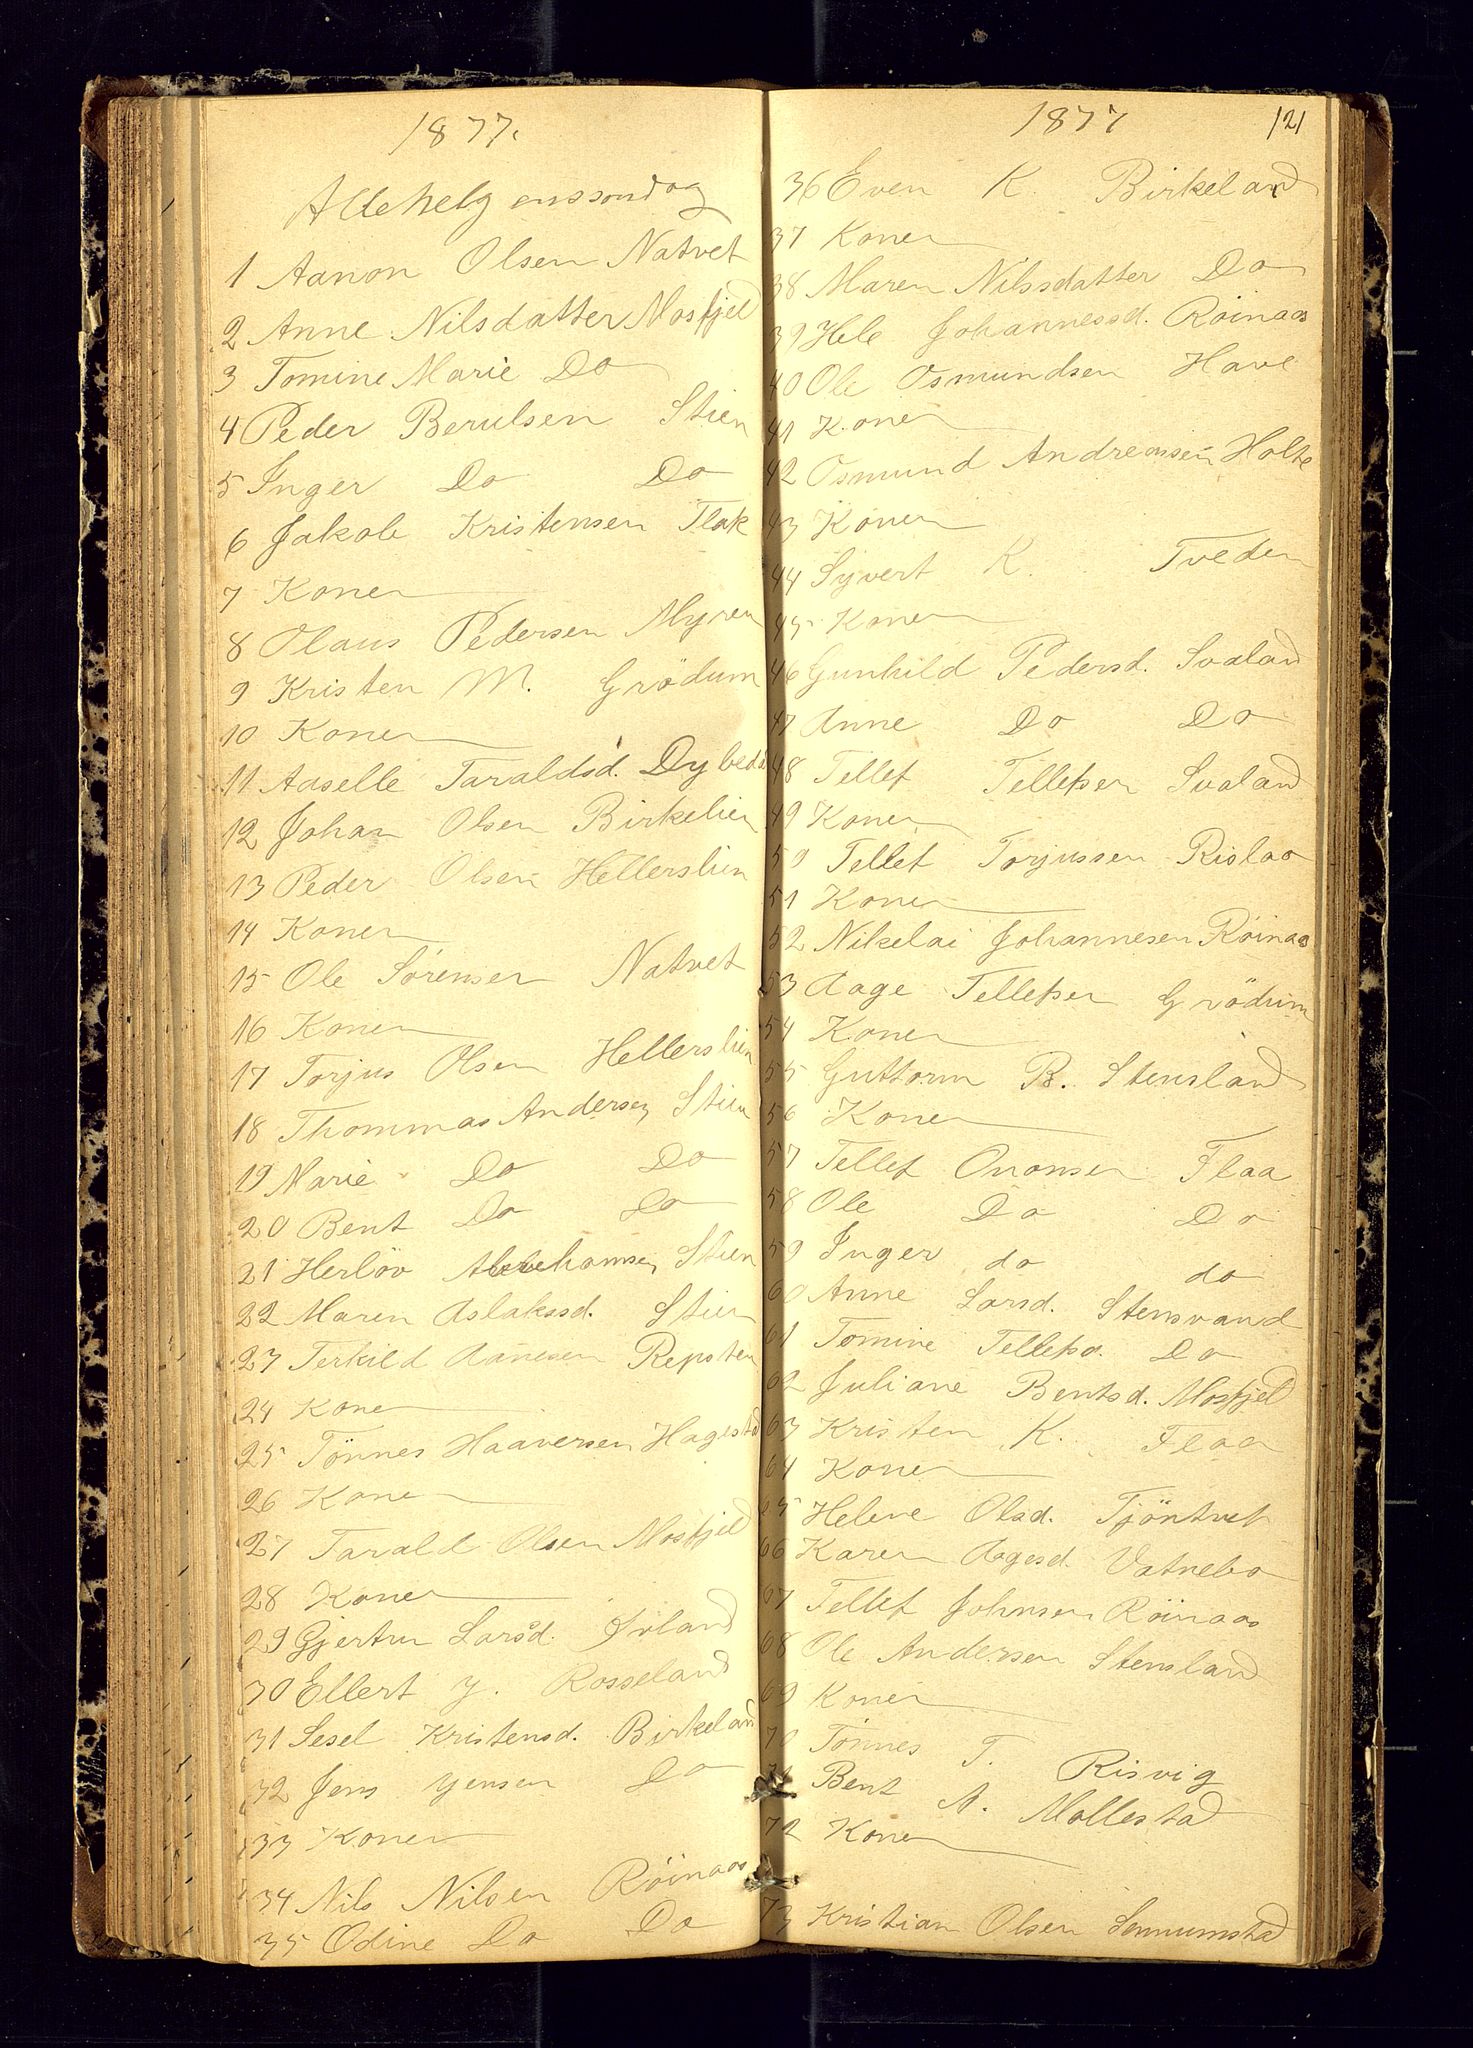 1877.
Allehelgenssondag
1 Aanon Olsen Natvet
2 Anne Nilsdatter Mosfjeld
3 Tomine Marie Do
4 Peder Berulsen Stien
5 Inger Do Do
6 Jakob Kristensen Flak
7 Konen
8 Olaus Pedersen Myren
9 Kristen M. Grödum
10 Konen
11 Aaselle Taraldsd. Dybedal
12 Johan Olsen Birkelien
13 Peder Olsen Hellerslien
14 Konen
15 Ole Sörensen Natvet
16 Konen
17 Torjus Olsen Hellerslien
18 Thommas Andersen Stien
19 Marie Do Do
20 Bent Do Do
21 Herlöv Abrehamsen Stien
22 Maren Aslakssd. Stien
23 Terkild Aanesen Repsten
24 Konen
25 Tönnes Haaversen Hagestad
26 Konen
27 Tarald Olsen Mosfjeld
28 Konen
29 Gjertru Larsd. Ivland
30 Ellert J. Rosseland
31 Sesel Kristensd. Birkeland
32 Jens Jensen Do
33 Konen
34 Nils Nilsen Röinaas
35 Odine Do Do
1877 121
36 Even K. Birkeland
37 Konen
38 Maren Nilssdatter Do
39 Hele Johannessd. Röinaas
40 Ole Osmundsen Have
41 Konen
42 Osmund Andreassen Holte
43 Konen
44 Syvert K. Tveden
45 Konen
46 Gunhild Pedersd. Svaland
47 Anne Do Do
48 Tellef Tellefsen Svaland
49 Konen
50 Tellef Torjussen Rislaa
51 Konen
52 Nikelai Johannesen Röinaas
53 Aage Tellefsen Grödum
54 Konen
55 Guttorm B. Stensland
56 Konen
57 Tellef Ononsen Flaa
58 Ole Do Do
59 Inger do do
60 Anne Larsd. Stensvand
61 Tomine Tellefsd. Do
62 Juliane Bentsd. Mosfjeld
63 Kristen K. Flaa
64 Konen
65 Helene Olsd. Tjöntvet
66 Karen Aagesd. Vatnebo
67 Tellef Johnsen Röinaas
68 Ole Andersen Stensland
69 Konen
70 Tönnes T. Risvig
71 Bent A. Mollestad
72 Konen
73 Kristian Olsen Sennumstad